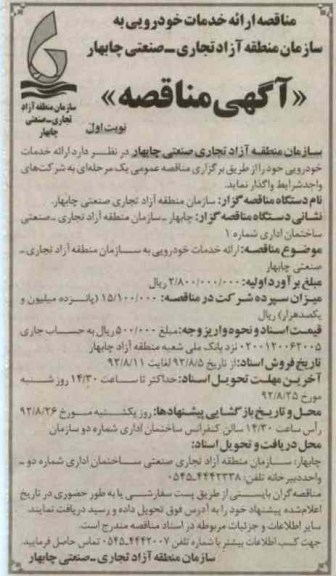 مناقصه ارائه خدمات خودرویی به
سازمان منطقه آزاد تجاری ـ صنعتی چابهار
«آگهی مناقصه»
نوبت اول
سازمان منطقه آزاد
تجاری ـ صنعتی
چابهار
سازمان منطقه آزاد تجاری صنعتی چابهار در نظر دارد ارائه خدمات
خودرویی خود را از طریق برگزاری مناقصه عمومی یک مرحله‌ای به شرکت‌های
واجد شرایط واگذار نماید.
نام دستگاه مناقصه گزار: سازمان منطقه آزاد تجاری صنعتی چابهار.
نشانی دستگاه مناقصه گزار: چابهار ـ سازمان منطقه آزاد تجاری ـ صنعتی
ساختمان اداری شماره ۱
موضوع مناقصه: ارائه خدمات خودرویی به سازمان منطقه آزاد تجاری ـ
صنعتی چابهار
مبلغ برآورد اولیه: ۲/۸۰۰/۰۰۰/۰۰۰ ریال
میزان سپرده شرکت در مناقصه: ۱۵/۱۰۰/۰۰۰ (پانزده میلیون و
یکصد هزار) ریال
قیمت اسناد و نحوه واریز وجه: مبلغ ۵۰۰/۰۰۰ ریال به حساب جاری
۰۲۰۰۱۲۰۰۶۲۰۰۵ نزد بانک ملی شعبه منطقه آزاد چابهار
تاریخ فروش اسناد: از تاریخ ۹۲/۸/۵ لغایت ۹۲/۸/۱۱
آخرین مهلت تحویل اسناد: حداکثر تا ساعت ۱۴/۳۰ روز شنبه
مورخ ۹۲/۸/۲۵
محل و تاریخ بازگشایی پیشنهادها: روز یکشنبه مورخ ۹۲/۸/۲۶
رأس ساعت ۱۴/۳۰ سالن کنفرانس ساختمان اداری شماره دو سازمان
محل دریافت و تحویل اسناد:
چابهار: سازمان منطقه آزاد تجاری صنعتی ساختمان اداری شماره دو ـ
واحد دبیرخانه تلفن: ۴۴۴۲۲۳۸-۰۵۴۵
مناقصه گران بایستی از طریق پست سفارشی یا به طور حضوری در تاریخ
اعلام شده پیشنهاد خود را به آدرس فوق تحویل داده و رسید دریافت نمایند.
سایر اطلاعات و جزئیات مربوطه در اسناد مناقصه مندرج است.
جهت کسب اطلاعات بیشتر با شماره تلفن ۴۴۴۲۰۰۷-۰۵۴۵ تماس حاصل فرمایید.
سازمان منطقه آزاد تجاری ـ صنعتی چابهار